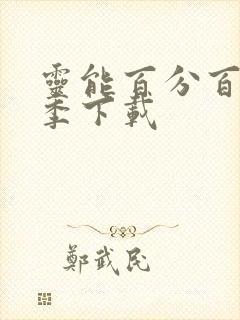 靈能百分百
季下載
鄭武民